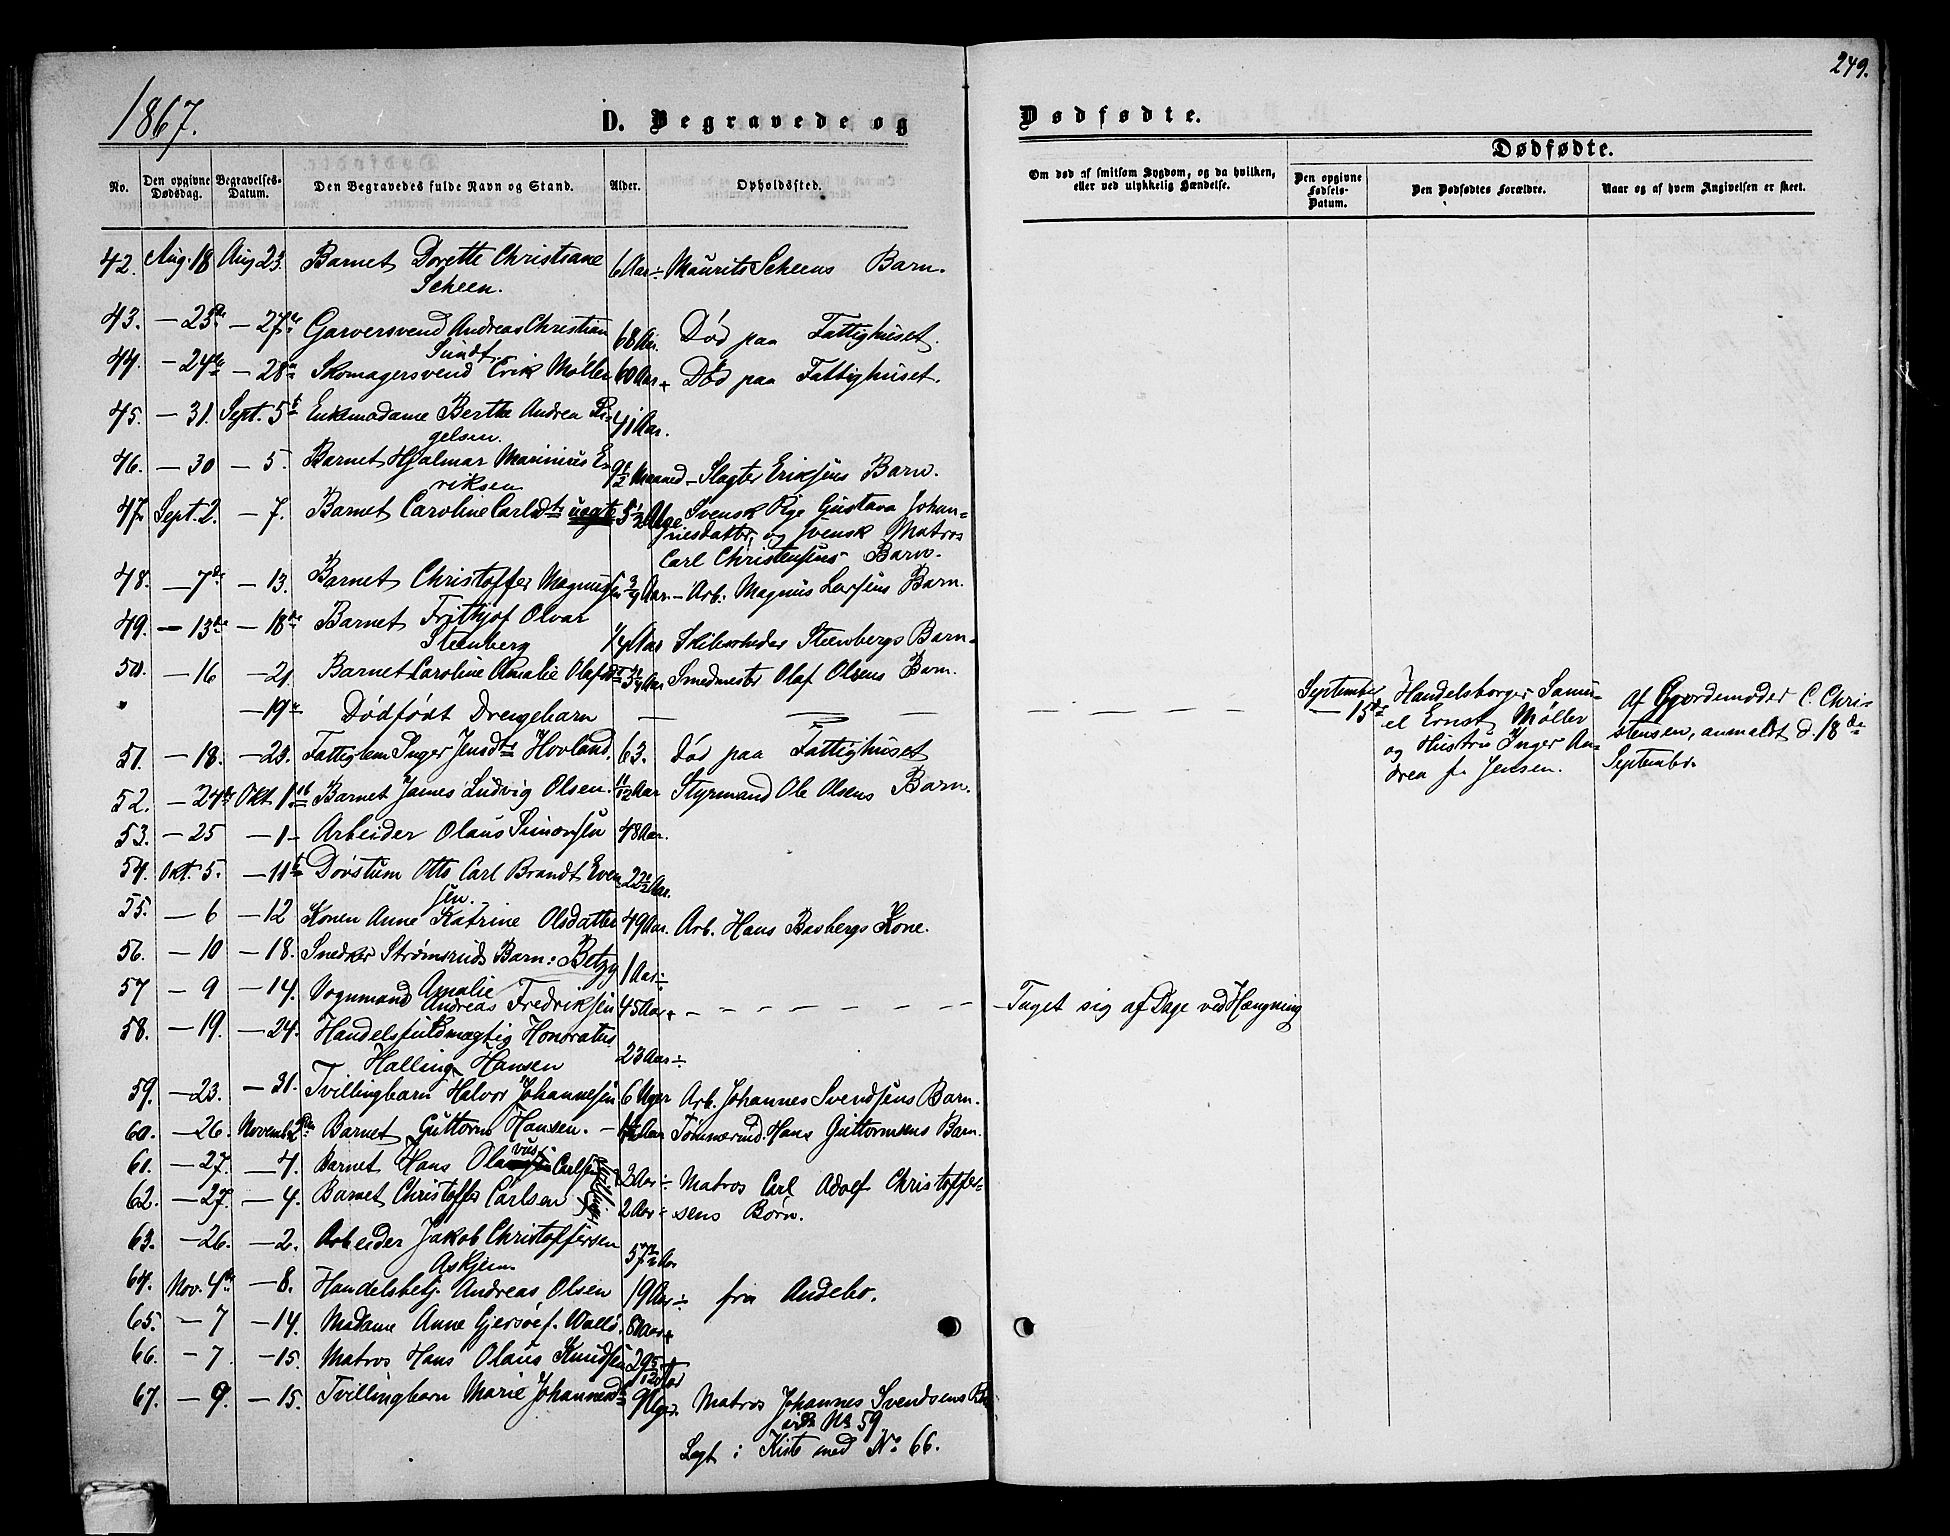 249.
1867.
D. Begravede og Dødfødte.
No. Den opgivne Dødsdag. Begravelses-Datum. Den Begravedes fulde Navn og Stand. Alder. Opholdssted. Om død af smitsom Sygdom, og da hvilken, eller ved ulykkelig Hændelse.
Dødfødte.
Den opgivne Fødsels-Datum. Den Dødfødtes Forældre. Naar og af hvem Angivelsen er skeet.
42. Aug. 18 Aug 23. Barnet Dorette Christiane 6 Aar ÷ Maurits Scheens Barn.
Scheen.
43. — 23de — 27de Garversvend Andreas Christian 68 Aar. Død paa Fattighuset.
Sundt.
44. — 24de — 28de Skomagersvend Erik Møller 60 Aar + Død paa Fattighuset.
45. — 31. Sept. 5te Enkemadame Berthe Andrea Ri- 41 Aar.
gelsen.
46. — 30 — 5. Barnet Hjalmar Marinius E- 9½ Maaned — Slagter Eriksens Barn.
riksen
47. Sept. 2. — 7. Barnet Caroline Carlsdtr uægte 5½ Uge Svensk Pige Gustava Johan-
nesdatter, og svensk Matros
Carl Christensens Barn.
48. — 7de — 13. Barnet Christoffer Magnussen ¾ Aar. — Arb. Magnus Larsens Barn.
49. — 13de — 18de Barnet Frithjof Olvar
Steenberg ¼ Aar Skibsrheder Steenbergs Barn
50. — 16 — 21. Barnet Caroline Amalie Olafsdtr Aar Smedmester Olaf Olsens Barn.
" — 19de Dødfødt Drengebarn — — — — — — —
September Handelsborger Samu- Af Gjordemoder C. Chri-
— 15de el Ernst Møller stensen, anmeldt d. 18de
og Hustru Inger An- September.
drea f. Jensen.
51. — 18. — 23. Fattiglem Inger Jensdtr Hovland. 63. Død paa Fattighuset
52. — 24de Okt 1ste Barnet James Ludvig Olsen. 11/12 Aar Styrmand Ole Olsens Barn.
53. — 25 — 1 — Arbeider Olaus Simonsen 48 Aar.
54. Okt. 5. — 11te Døvstum Otto Carl Brandt Even 22½ Aar.
sen.
55. — 6 — 12 Konen Anne Katrine Olsdatter 49 Aar. Arb. Hans Basbergs Kone.
56. — 10 — 18. Snedker Strømsruds Barn: Betzy 1 Aar ÷
Amalie
57 — 9 — 14. Vognmand Andreas Fredriksen 45 Aar + — — — — — — Taget sig af Dage ved Hængning
58. — 19. — 24. Handelsfuldmægtig Honoratus
Halling Hansen 23 Aar ÷
59. — 23. — 31. Tvillingbarn Halvor Johannesen 6 Uger Arb. Johannes Svendsens Barn.
60. — 26. Novemb. 2den Barnet Guttorm Hansen. — Aar Tømmermd. Hans Guttormsens Barn.
61. — 27. — 4. Barnet Hans Olavus Carlsen Tvillinger 2 Aar ÷ Matros Carl Adolf Christoffer-
62. — 27. — 4. Barnet Christoffer Carlsen 2 Aar ÷ sens Børn.
63. — 26. — 2. Arbeider Jakob Christoffersen
Askjem 57½ Aar
64. Nov. 4de — 8. Handelsbetj. Andreas Olsen 19 Aar ÷ fra Andebo.
65. — 7 — 14. Madame Anne Gjersøe f. Wallø. 80 Aar +
66. — 7. — 15. Matros Hans Olaus Knudsen 29 5/12 Aar
67. — 9. — 15. Tvillingbarn Marie Johannesdtr 9 Uger. Matros Johannes Svendsens Ba
vide No 59.
Lagt i Kiste med No 66.